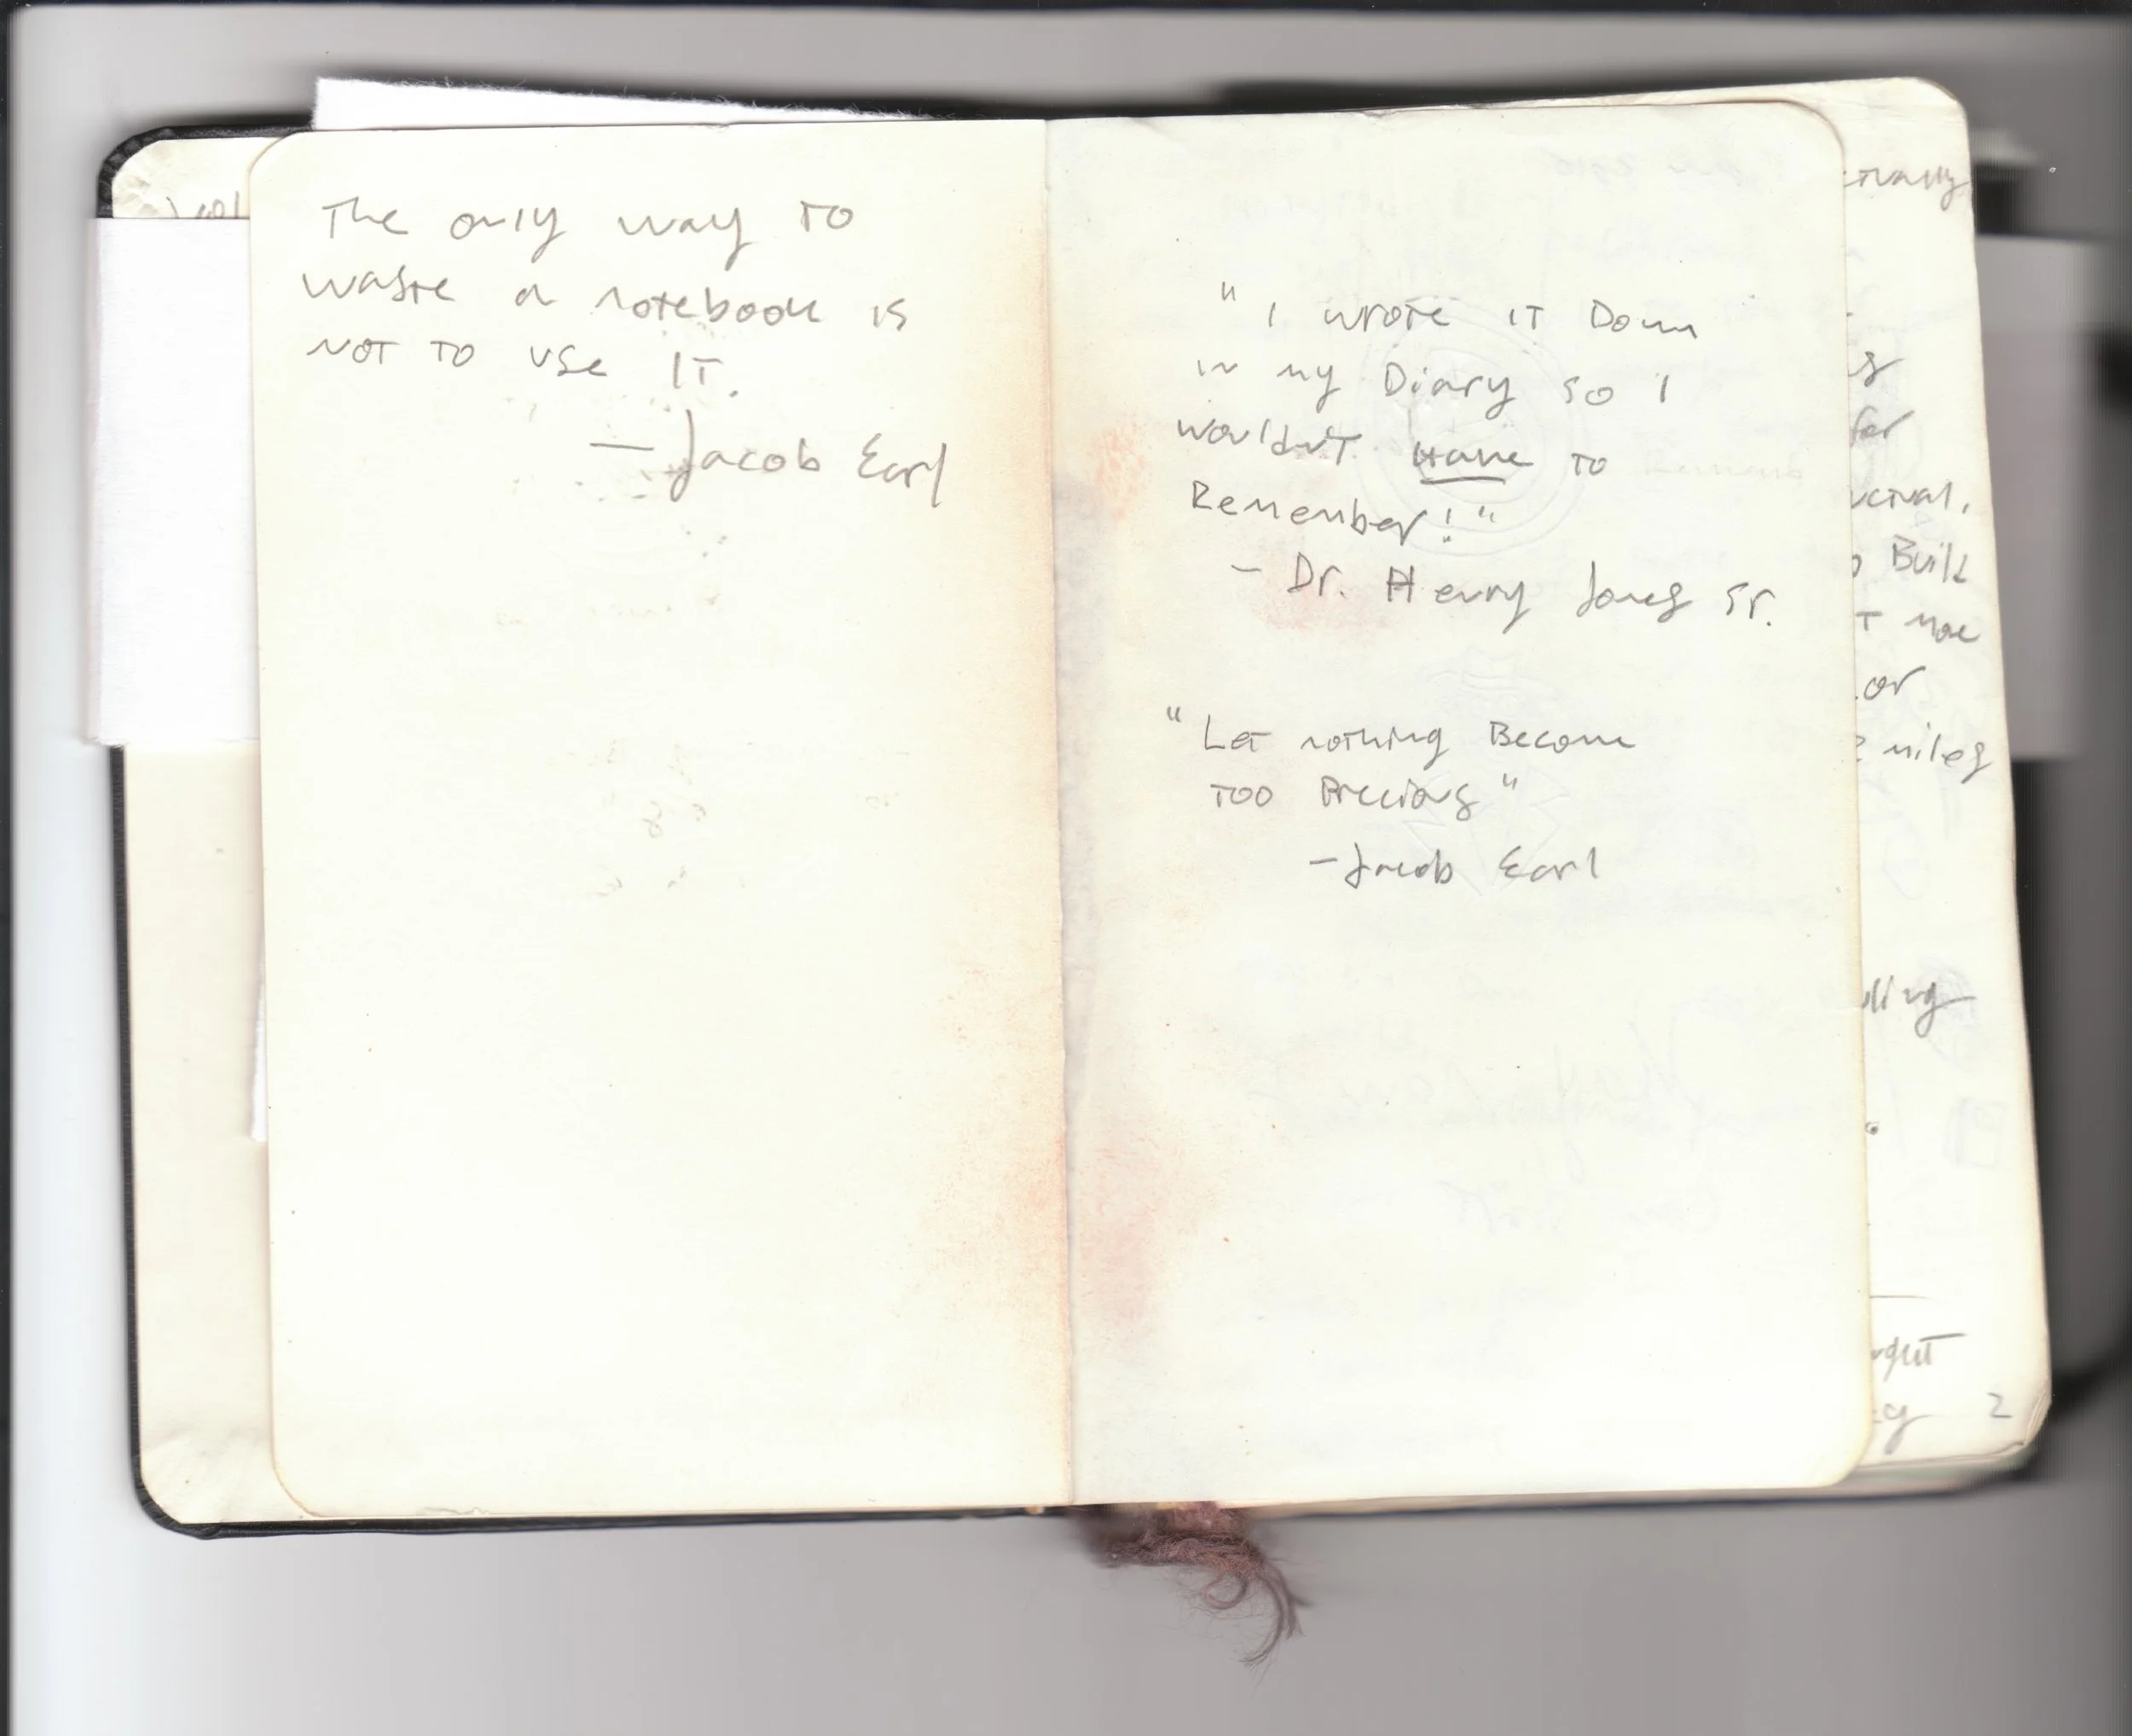 The only way to
waste a notebook is
not to use it.
— Jacob Earl
"I wrote it Down
in my Diary so I
wouldn't have to
Remember!"
- Dr. Henry Jones Sr.
"Let nothing Become
too Precious"
- Jacob Earl
for
Build
or
miles
2